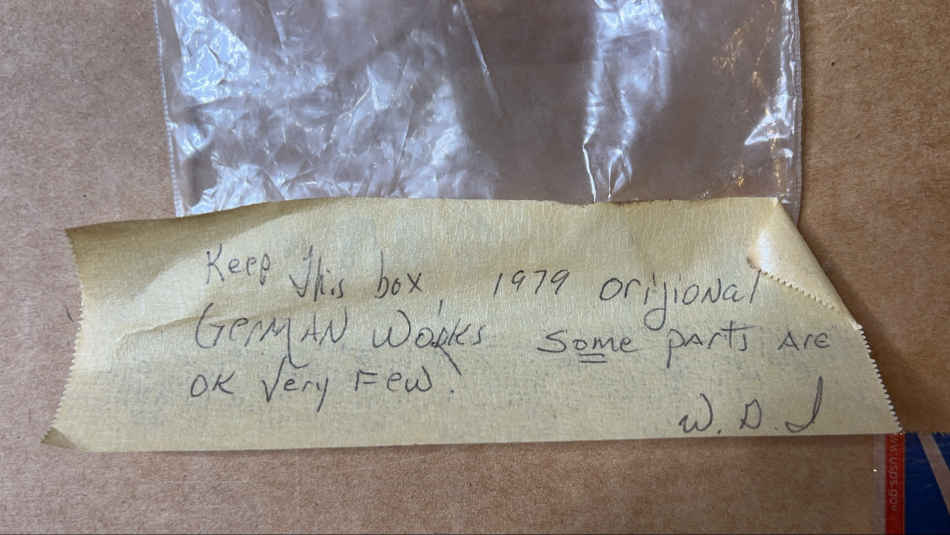 Keep This box, 1979 orijional
GerMAN Works some parts Are
OK Very Few.
W. D. I
www.usps.gov